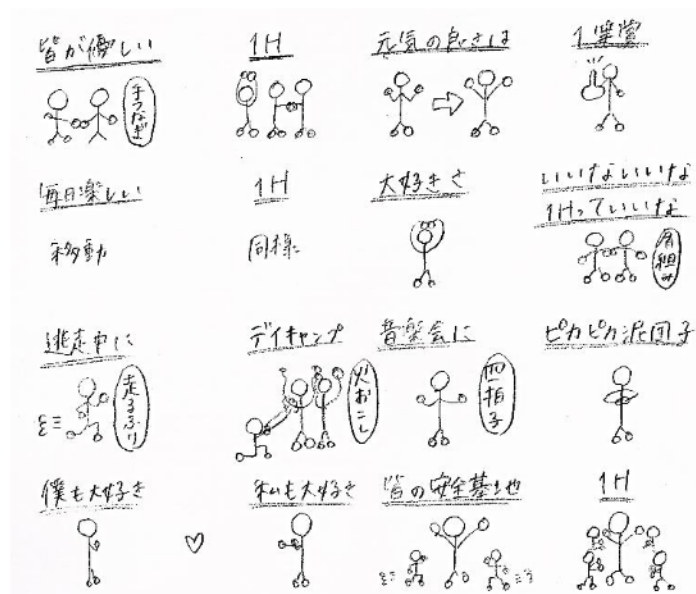 皆が優しい
手つなぎ
1H
元気の良さは
1等賞
毎日楽しい
移動
1H
同様
大好きさ
いいないいな
1Hっていいな
肩組み
逃走中に
走るふり
デイキャンプ
火おこし
音楽会に
四拍子
ピカピカ泥団子
僕も大好き
♡
私も大好き
皆の安全基地
1H